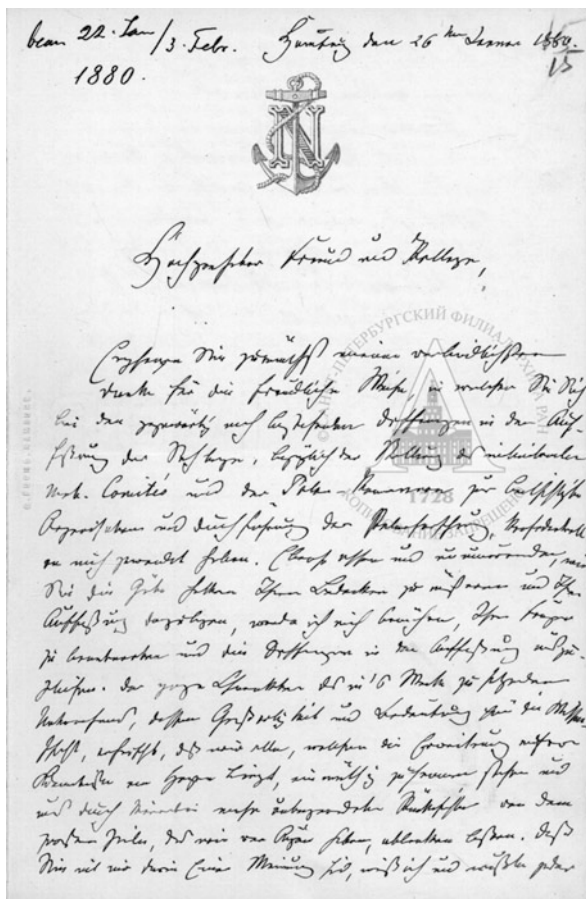 bean 22. Jan/3. Febr. Hamburg den 26ten Januar 1880.
1880. 15
N
Hochgeehrter Freund und Kollege,
Empfangen Sie zunächst meinen verbindlichsten
Danke für die freundliche Weise, in welcher Sie Sich
bei den gegenwärtig noch bestehenden Differenzen in der Auf-
fassung der Sachlage, bezüglich der Stellung des internationalen
met. Comités und der Polar-Konferenz zur
Organisation und Durchführung der Polarforschung,
an mich gewendet haben. Ebenso offen und
Sie die Güte hatten Ihre Bedenken zu äussern und Ihre
Auffassung darzulegen, werde ich mich bemühen, Ihre Fragen
zu beantworten und die Differenzen in der Auffassung
Der ganze Charakter des in's Werk zu setzenden
Unternehmens, dessen Großartigkeit und Bedeutung für die Wissen-
schaft, erheischt, daß wir alle, welchen die Erweiterung unserer
Kenntnisse am Herzen liegt, einmüthig zusammen stehen und
uns durch keinerlei Rücksichten von dem
grossen Ziele, das wir vor Augen haben, ablenken lassen. Daß
Sie mit mir darin Einer Meinung sind, weiß ich und wüßte jeder
САНКТ-ПЕТЕРБУРГСКИЙ ФИЛИАЛ АРХИВА РАН
1728
КОПИРОВАНИЕ ЗАПРЕЩЕНО